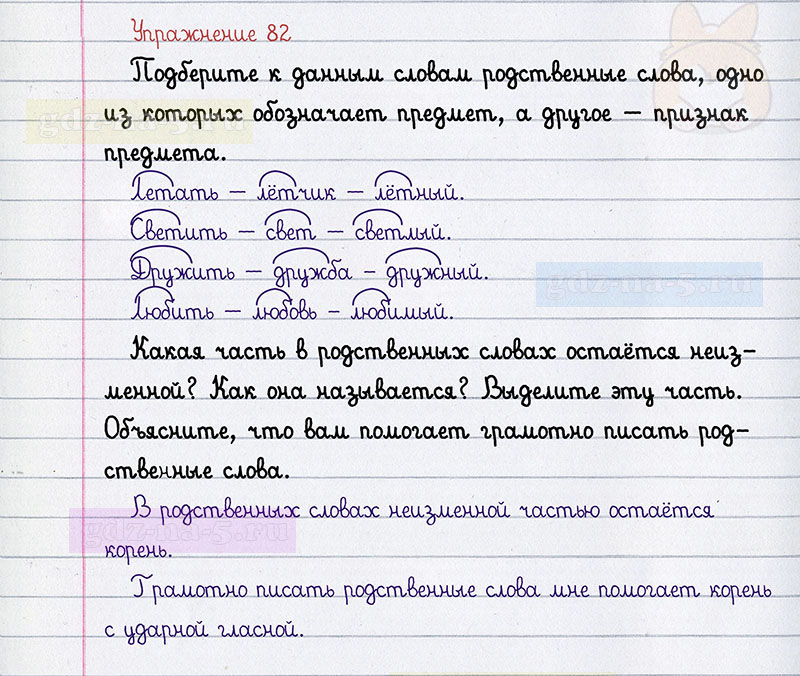 Упражнение 82
Подберите к данным словам родственные слова, одно
из которых обозначает предмет, а другое — признак
gdz-na-5.ru
предмета.
Летать — лётчик — лётный.
Светить — свет — светлый.
Дружить — дружба – дружный.
gdz-na-5.ru
Любить — любовь – любимый.
Какая часть в родственных словах остаётся неиз–
менной? Как она называется? Выделите эту часть.
Объясните, что вам помогает грамотно писать род–
ственные слова.
В родственных словах неизменной частью остаётся
gdz-na-5.ru
корень.
Грамотно писать родственные слова мне помогает корень
с ударной гласной.